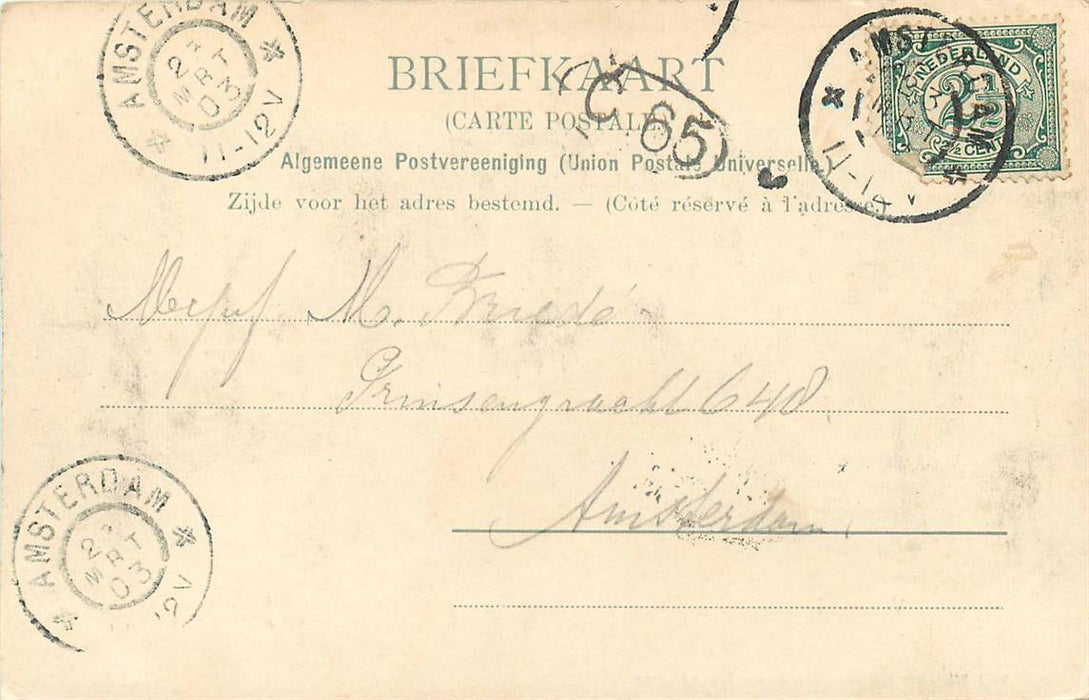 AMSTERDAM
23
MRT
03
11-12V
BRIEFKAART
(CARTE POSTALE)
65
Algemeene Postvereeniging (Union Postale Universelle)
Zijde voor het adres bestemd. — (Côté réservé à l'adresse)
NEDERLAND
2½
2½ CENT
Mejuf. M. Briedé
Prinsengracht 648.
Amsterdam.
AMSTERDAM
23
MRT
03
12V